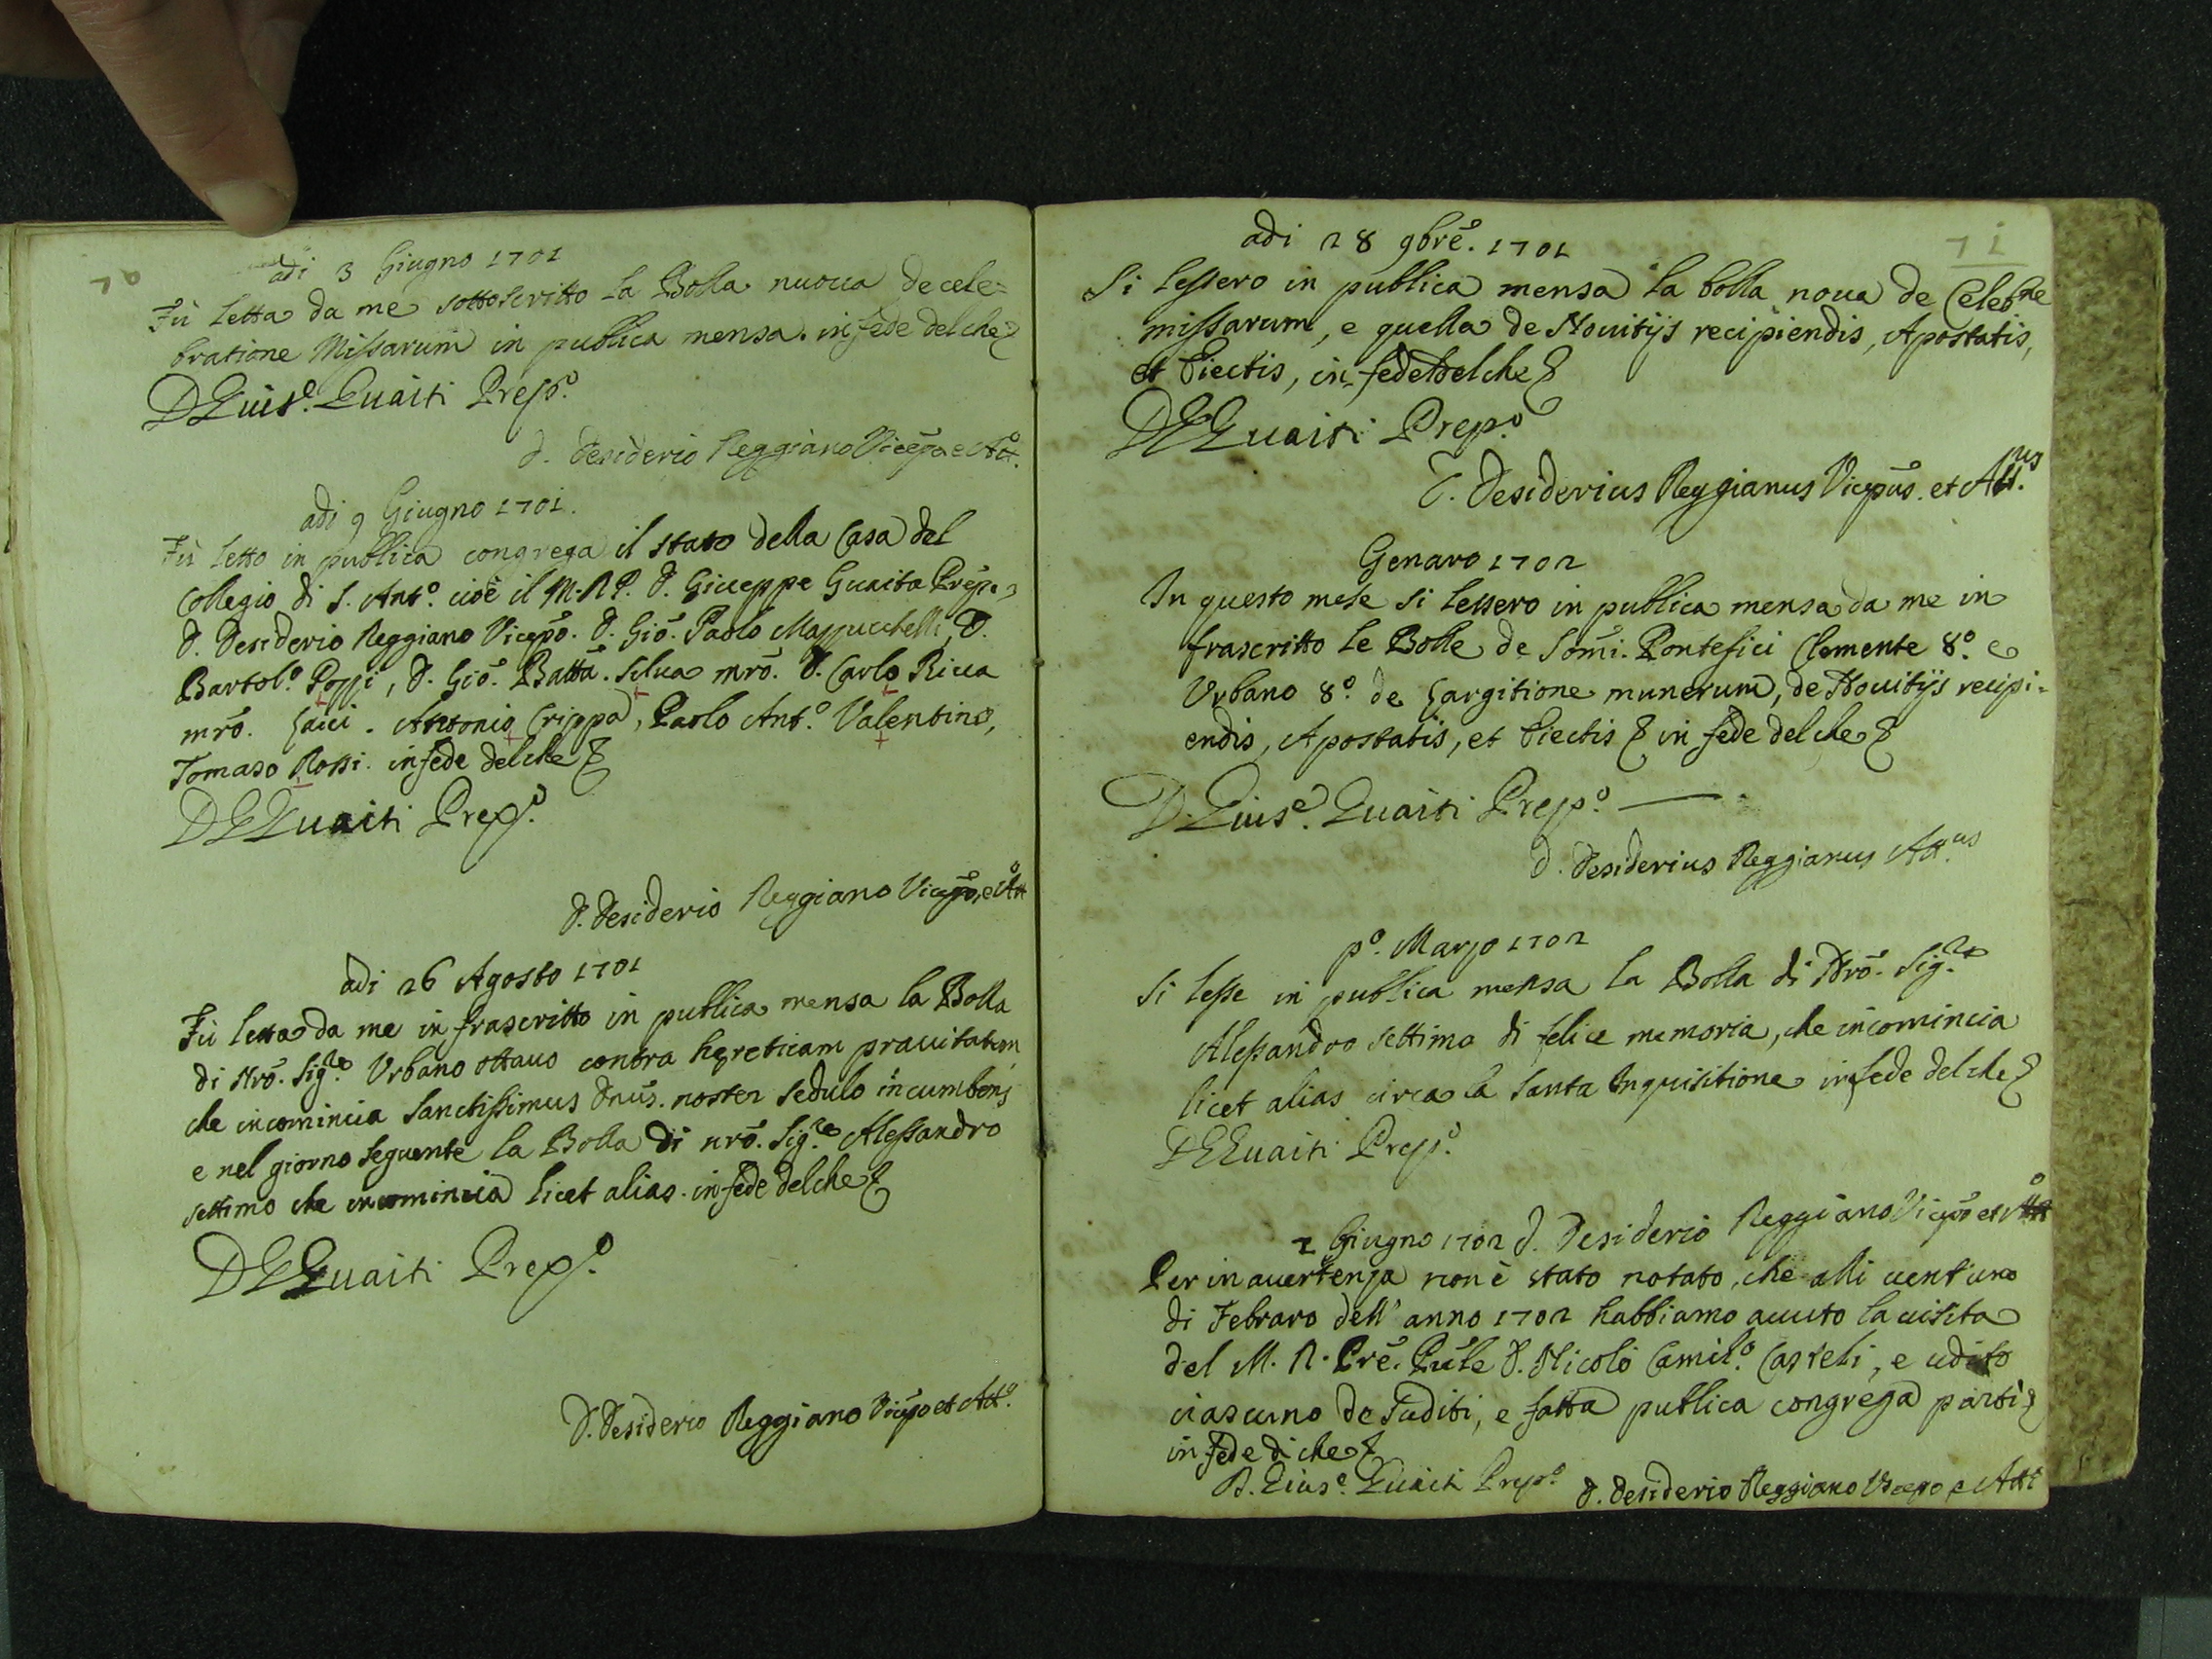 70
adi 3 Giugno 1701
Fù letta da me sottoscritto la Bolla nuova de cele=
bratione Missarum in publica mensa. in fede del che
D Gius.e Guaiti Prep.o
D. Desiderio Reggiano Vicepo e Att.o
adi 9 Giugno 1701.
Fù letto in publica congrega il stato della Casa del
Collegio di S. Ant.o cioè il M. R. P. D. Giuseppe Guaita Prepo
D. Desiderio Reggiano Vicepō. D. Giō. Paolo Mazzucchelli, D.
Bartol.o Pozzi, D. Giō. Battā. Silua mrō. D. Carlo Riua
mrō. Laici. Antonio Crippa, Paolo Ant.o Valentino,
Tomaso Rossi. in fede del che
D G Guaiti Prep.o
D. Desiderio Reggiano Vicepo, e Att.o
adi 26 Agosto 1701
Fù letta da me infrascritto in publica mensa la Bolla
di Nrō. Sig.re Vrbano ottauo contra hereticam prauitatem
che incomincia Sanctissimus Dnūs. noster sedulo incumbens
e nel giorno seguente la Bolla di nrō. Sig.re Alessandro
settimo che incomincia licet alias. in fede del che
D G Guaiti Prep.o
D. Desiderio Reggiano Vicepo et Att.o
71
adi 28 9brē. 1701
Si lessero in publica mensa la bolla noua de Celebne
missarum, e quella de Nouitijs recipiendis, Apostatis,
et Eiectis, in fede del che
D G Guaiti Prep.o
D. Desiderius Reggianus Vicepūs. et Att.us
Genaro 1702
In questo mese si lessero in publica mensa da me in
frascritto le Bolle de Somī. Pontefici Clemente 8.o e
Vrbano 8.o de Largitione munerum, de Nouitijs recipi=
endis, Apostatis, et Eiectis in fede del che
D. Gius.e Guaiti Prep.o
D. Desiderius Reggianus Att.us
p.o Marzo 1702
Si lesse in publica mensa la Bolla di Nrō. Sig.re
Alessandro settimo di felice memoria, che incomincia
licet alias circa la Santa Inquisitione in fede del che
D G Guaiti Prep.o
D. Desiderio Reggiano Vicepo et Att.o
Giugno 1702
Per inauertenza non è stato notato, che alli uent'uno
di Febraro dell' anno 1702 habbiamo auuto la uisita
del M. R. Prē. Pūle D. Nicolò Camil.o Casteli, e udito
ciascuno de suditi, e fatta publica congrega partì
in fede di che
D. Gius.e Guaiti Prep.o D. Desiderio Reggiano Vicepo e Att.o